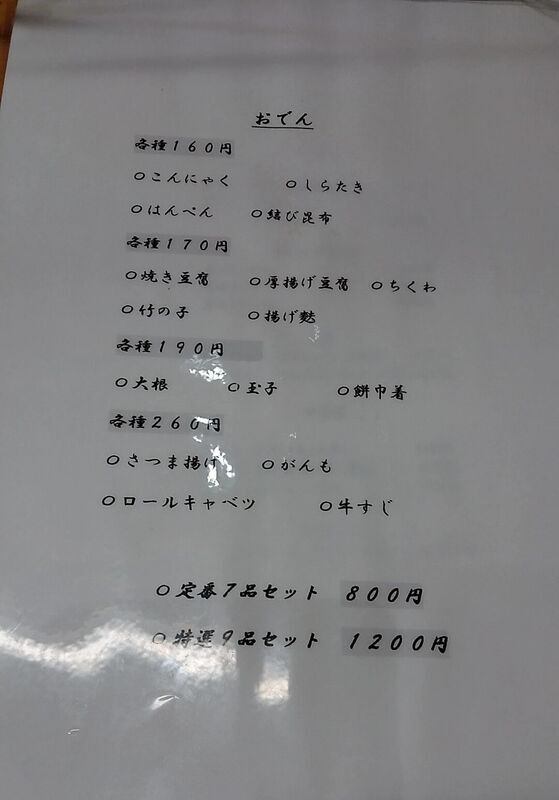 おでん
各種１６０円
○こんにゃく ○しらたき
○はんぺん ○結び昆布
各種１７０円
○焼き豆腐 ○厚揚げ豆腐 ○ちくわ
○竹の子 ○揚げ麩
各種１９０円
○大根 ○玉子 ○餅巾着
各種２６０円
○さつま揚げ ○がんも
○ロールキャベツ ○牛すじ
○定番７品セット ８００円
○特選９品セット １２００円